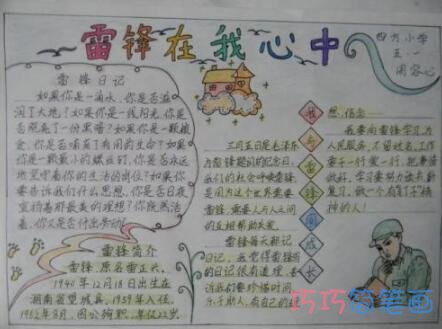 雷锋在我心中
四方小学
五·一
闲容心
雷锋日记
如果你是一滴水，你是否滋
润了大地？如果你是一线阳光，你是
否照亮了一份黑暗？如果你是一颗粮
食，你是否哺育了有用的生命？如果你
是一颗最小的螺丝钉，你是否永远
地坚守着你的生活的岗位？如果你
要告诉我们什么思想，你是否日夜
宣扬着那最美的理想？你既然活
着，你又是否
雷锋简介
雷锋，原名雷正兴，
1940年12月18日出生在
湖南省望城县，1959年入伍，
1962年8月，因公殉职，年仅22岁
三月五日是毛泽东
为雷锋题词的纪念日，
我们的社会呼唤雷锋，
是因为这个世界需要
雷锋，需要人与人之间
的互相帮助关爱。
雷锋每天都记
日记，我觉得雷锋
的日记很有道理，告
诉我们要珍惜时间，
乐于助人，有自己的
我
与
雷
锋
同
成
长
想，信念——
我要向雷锋学习，为
人民服务，不留姓名，工作
要干一行爱一行，把事情
做好，学习要努力勤奋刻
苦，做一个有"钉子"精
神的人！
巧巧简笔画